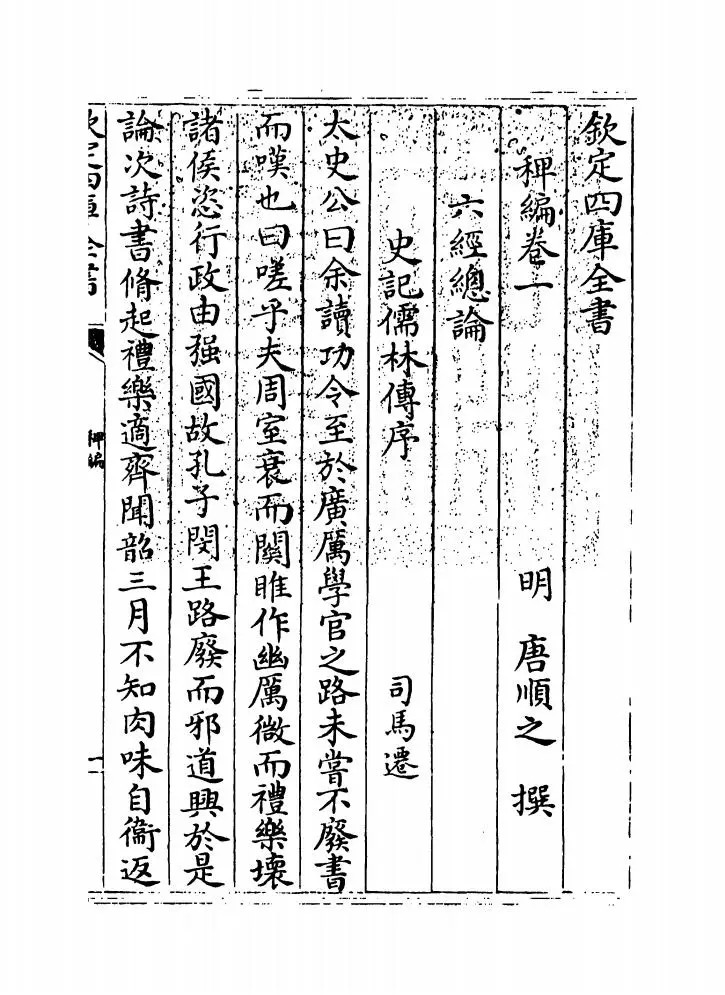 欽定四庫全書
稗編卷一 明 唐順之 撰
六經總論
史記儒林傳序 司馬遷
太史公曰余讀功令至於廣厲學官之路未嘗不廢書
而嘆也曰嗟乎夫周室衰而關睢作幽厲微而禮樂壞
諸侯恣行政由强國故孔子閔王路廢而邪道興於是
論次詩書脩起禮樂適齊聞韶三月不知肉味自衞返
欽定四庫全書
稗編
一